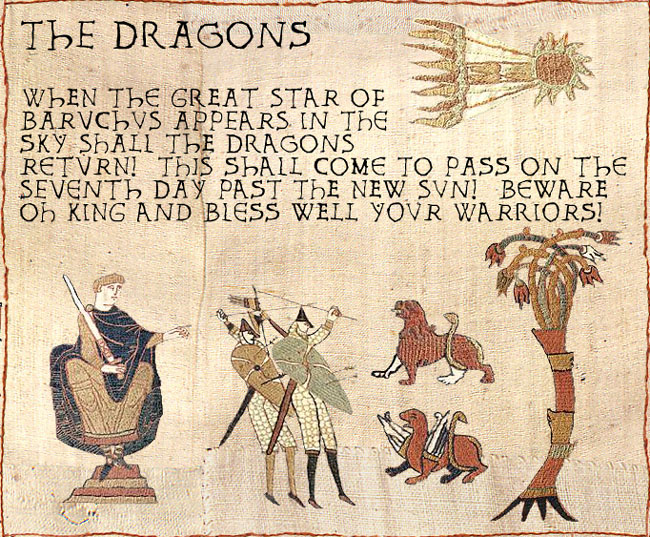 The DRAGONS
WhEN ThE GREAT STAR OF
BARVChVS APPEARS IN ThE
SKY ShALL ThE DRAGONS
RETVRN! ThIS ShALL COME TO PASS ON ThE
SEVENTh DAY PAST ThE NEW SVN! BEWARE
Oh KING AND BLESS WELL YOVR WARRIORS!